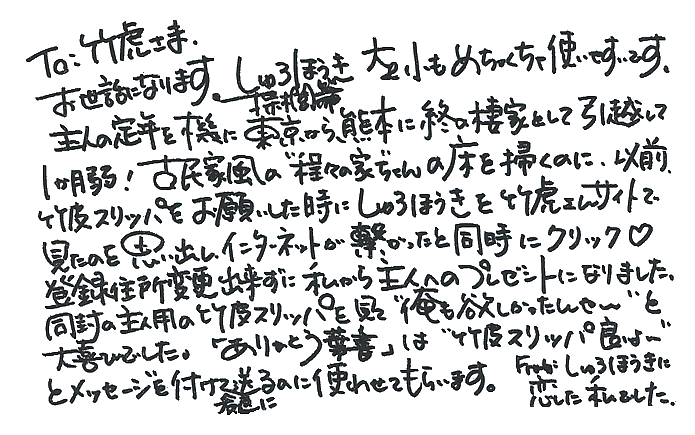 To:竹虎さま.
お世話になります。しゅろほうき 大も小もめちゃくちゃ使いやすいです。
棕櫚箒
主人の定年を機に東京から熊本に終の棲家として引越して
1か月弱!古民家風の"程々の家"ちゃんの床を掃くのに、以前、
竹皮スリッパをお願いした時にしゅろほうきを竹虎さんサイトで
見たのを思い出し、インターネットが繋がったと同時にクリック♡
登録住所変更出来ずに私から主人へのプレゼントになりました。
同封の主人用の竹皮スリッパを見て"俺も欲しかったんせ〜"と
大喜びでした。「ありがとう葉書」は"竹皮スリッパ良いよ〜"
とメッセージを付けて送るのに使わせてもらいます。
友達に
From:しゅろほうきに
恋した私でした.